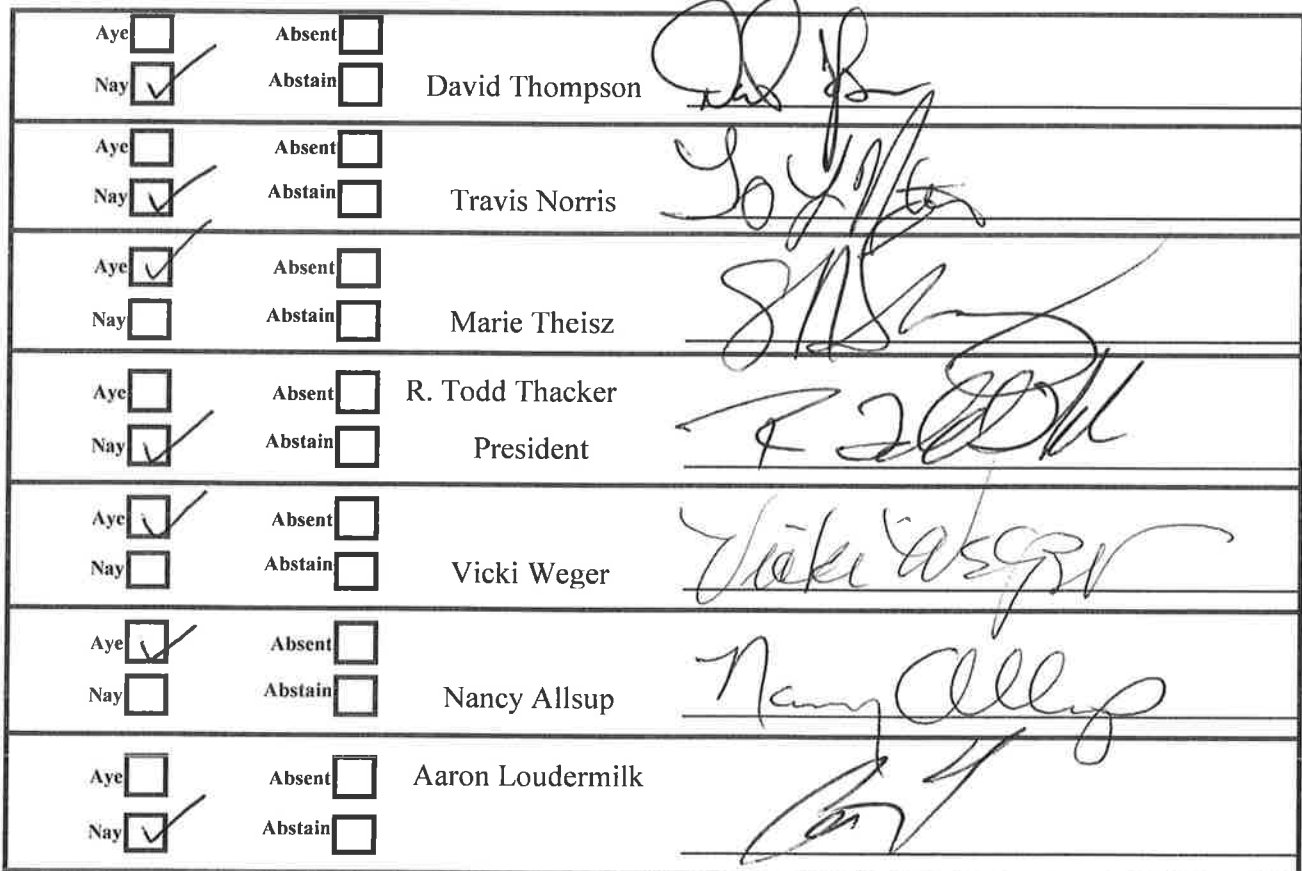 Aye Absent
Nay Abstain David Thompson
Aye Absent
Nay Abstain Travis Norris
Aye Absent
Nay Abstain Marie Theisz
Aye Absent R. Todd Thacker
Nay Abstain President
Aye Absent
Nay Abstain Vicki Weger
Vicki Weger
Aye Absent
Nay Abstain Nancy Allsup
Nancy Allsup
Aye Absent Aaron Loudermilk
Nay Abstain